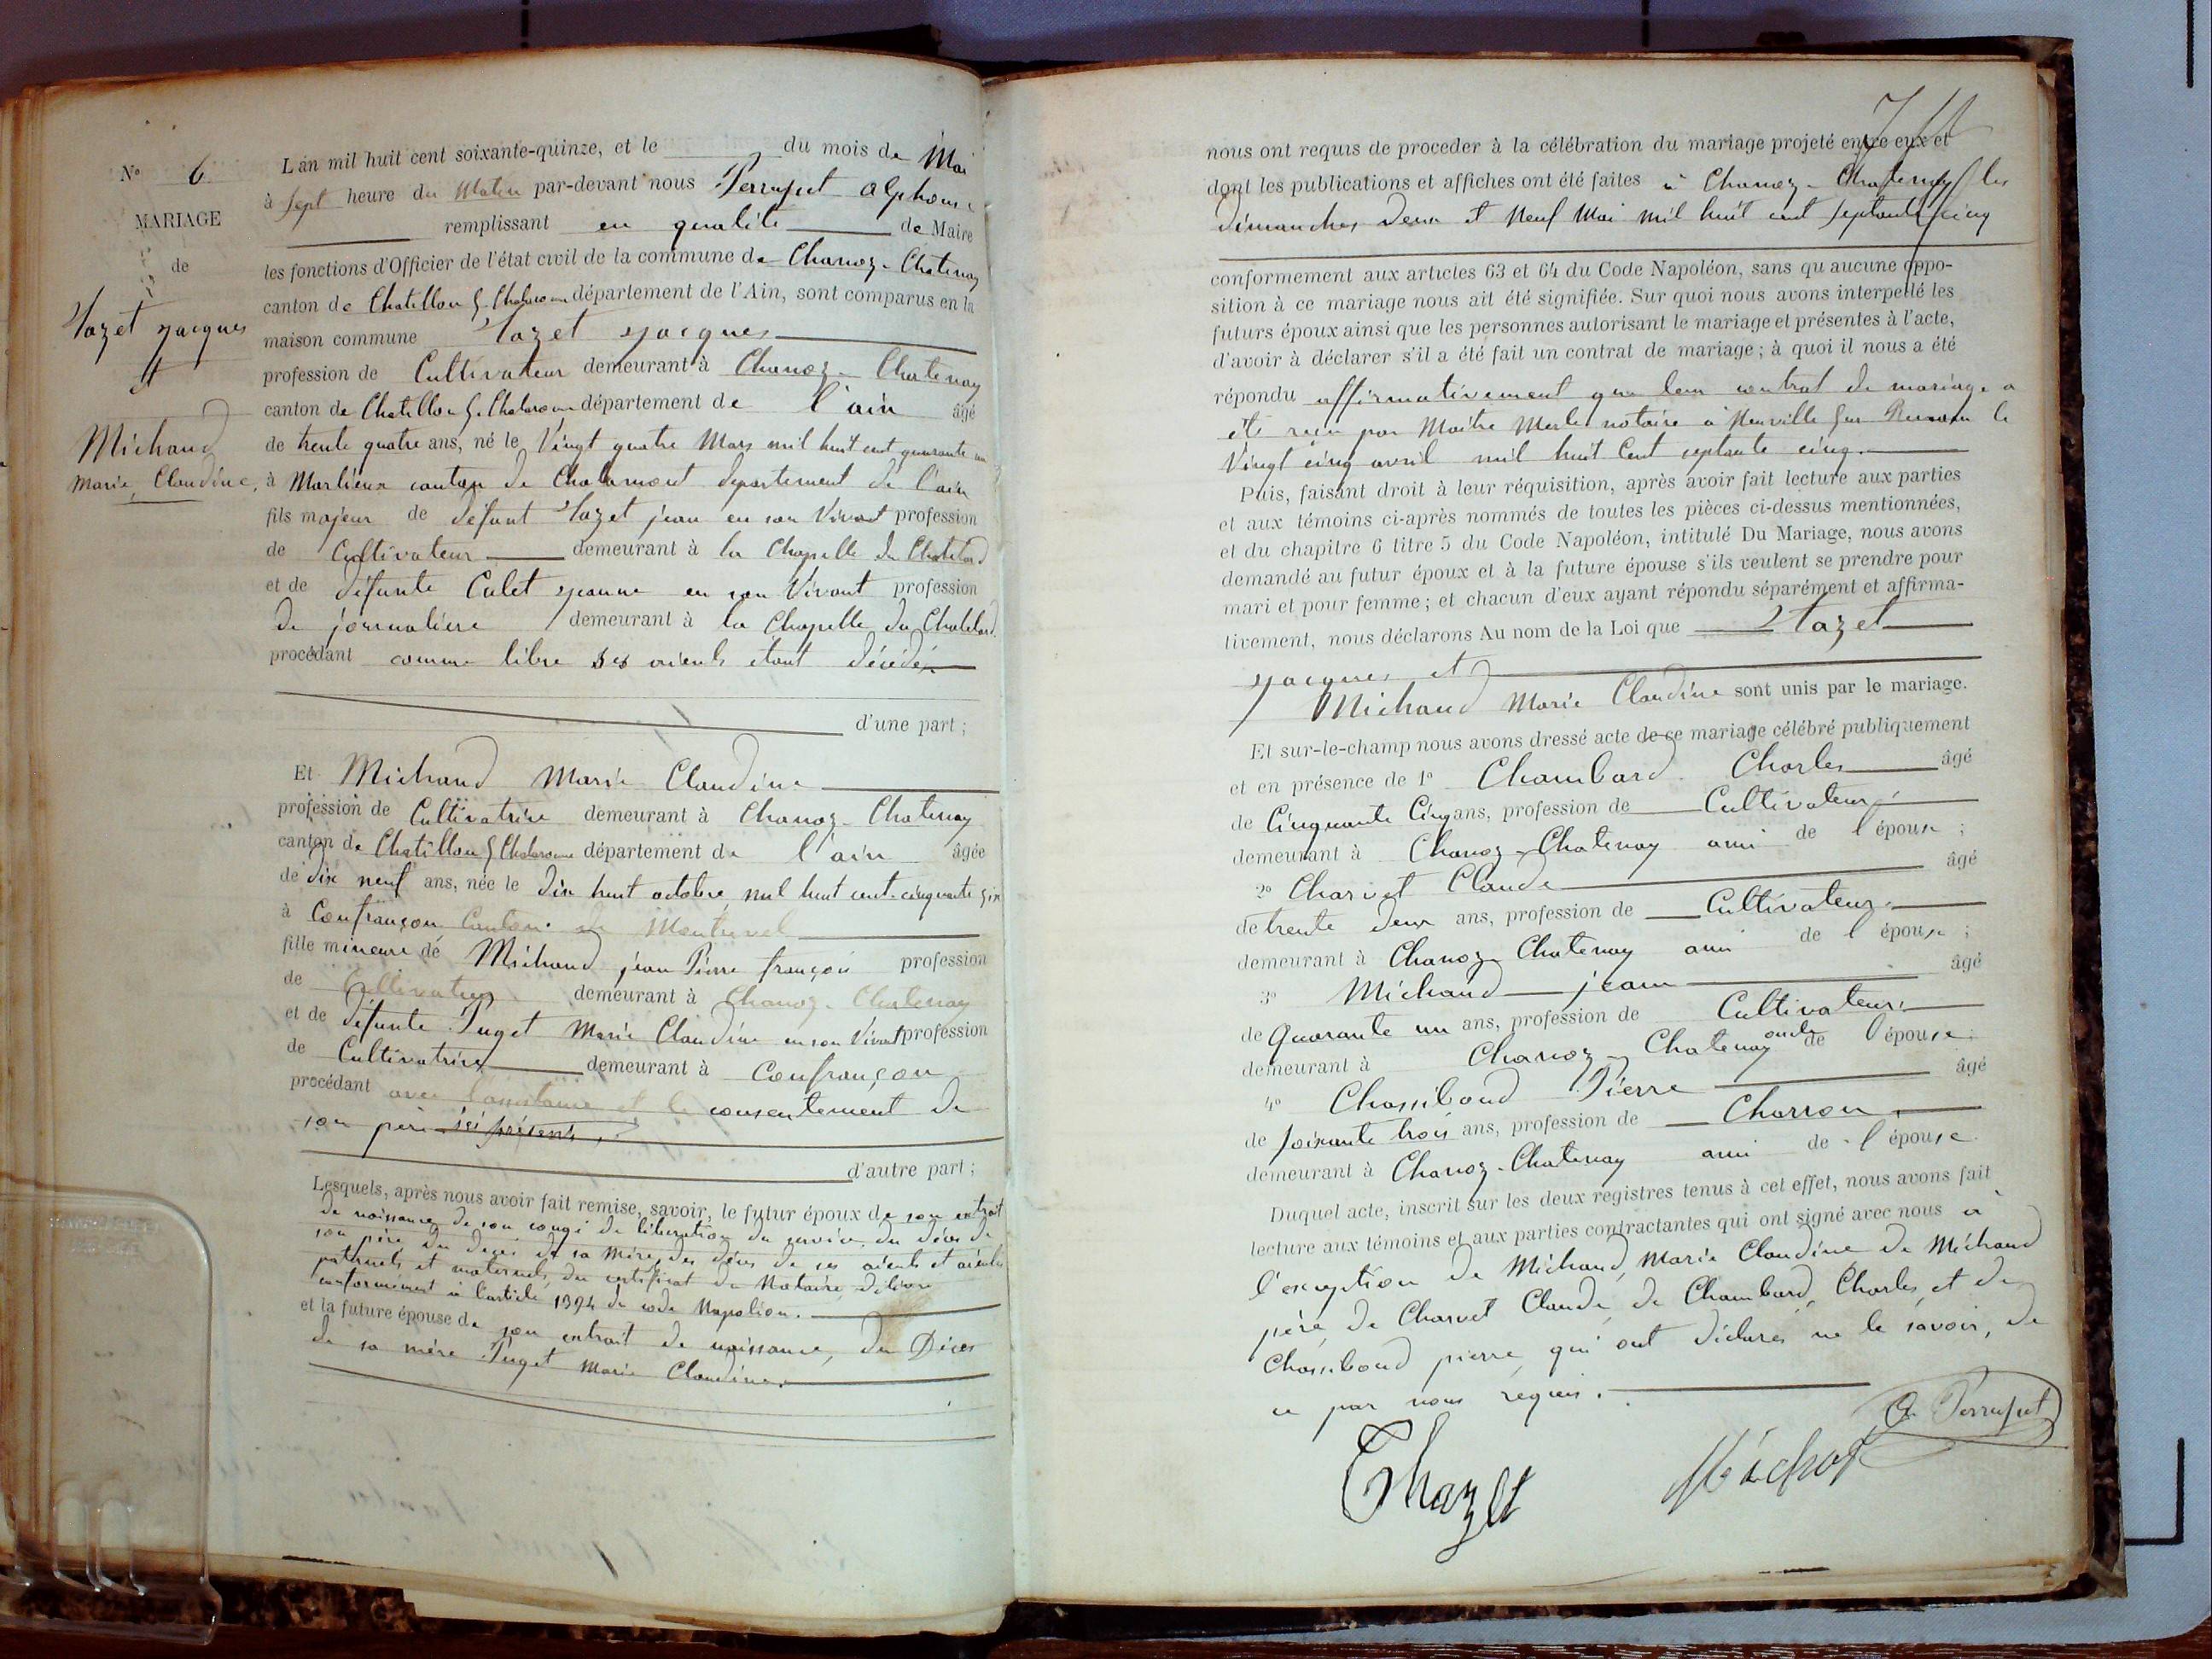 N° 6
MARIAGE
de
Tazet Jacques
et
Michaud
Marie Claudine,
L'an mil huit cent soixante-quinze, et le du mois de Mai
à sept heure du Matin par-devant nous Alphonse
remplissant en qualité de Maire
les fonctions d'Officier de l'état civil de la commune de Chanoz-Chatenay
canton de Chatillon S. Chalaronne département de l'Ain, sont comparus en la
maison commune Tazet Jacques
profession de Cultivateur demeurant à Chanoz-Chatenay
canton de Chatillon S. Chalaronne département de l'ain âgé
de trente quatre ans, né le Vingt quatre Mars mil huit cent quarante un
à Marlieux canton de Chalamont département de l'ain
fils majeur de défunt Tazet jean en son Vivant profession
de Cultivateur demeurant à la Chapelle du Chatelard
et de défunte Calet Jeanne en son Vivant profession
de journalière demeurant à la Chapelle du Chatelard.
procédant comme libre ses aieuls étant décédés
d'une part ;
Et Michaud Marie Claudine
profession de Cultivatrice demeurant à Chanoz-Chatenay
canton de Chatillon S Chalaronne département de l'ain âgée
de dix neuf ans, née le dix huit octobre mil huit cent cinquante six
à Confrançon Canton de Montrevel
fille mineure de Michaud jean Pierre françois profession
de Cultivateur demeurant à Chanoz-Chatenay
et de défunte Puget Marie Claudine en son Vivant profession
de Cultivatrice demeurant à Confrançon
procédant avec l'assistance et le consentement de
son père ici présents.
d'autre part ;
Lesquels, après nous avoir fait remise, savoir, le futur époux de son extrait
de naissance de son congé de libération du service du décès de
son père du décès de sa Mère, des décès de ses aieuls et aieules
paternels et maternels, du certificat du Notaire délivré
conformément à l'article 1394 du code Napoléon.
et la future épouse de son extrait de naissance, du Décès
de sa mère Puget Marie Claudine.
nous ont requis de proceder à la célébration du mariage projeté entre eux et
dont les publications et affiches ont été faites à Chanoz-Chatenay les
dimanches Deux et Neuf Mai mil huit cent septante cinq
conformement aux articles 63 et 64 du Code Napoléon, sans qu'aucune oppo-
sition à ce mariage nous ait été signifiée. Sur quoi nous avons interpellé les
futurs époux ainsi que les personnes autorisant le mariage et présentes à l'acte,
d'avoir à déclarer s'il a été fait un contrat de mariage ; à quoi il nous a été
répondu affirmativement que leur contrat de mariage a
été reçu par Maître Merle notaire à Neuville sur Renom le
Vingt cinq avril mil huit Cent septante cinq.
Puis, faisant droit à leur réquisition, après avoir fait lecture aux parties
et aux témoins ci-après nommés de toutes les pièces ci-dessus mentionnées,
et du chapitre 6 titre 5 du Code Napoléon, intitulé Du Mariage, nous avons
demandé au futur époux et à la future épouse s'ils veulent se prendre pour
mari et pour femme ; et chacun d'eux ayant répondu séparément et affirma-
tivement, nous déclarons Au nom de la Loi que Tazet
Jacques et
Michaud Marie Claudine sont unis par le mariage.
Et sur-le-champ nous avons dressé acte de ce mariage célébré publiquement
et en présence de 1° Chambard Charles âgé
de Cinquante Cinq ans, profession de Cultivateur
demeurant à Chanoz-Chatenay ami de l'épouse ;
2° Charvet Claude âgé
de trente deux ans, profession de Cultivateur
demeurant à Chanoz-Chatenay ami de l'épouse ;
3° Michaud jean âgé
de Quarante un ans, profession de Cultivateur
demeurant à Chanoz-Chatenay oncle de l'épouse ;
4° Chassiboud Pierre âgé
de soixante trois ans, profession de Charron
demeurant à Chanoz-Chatenay ami de l'épouse.
Duquel acte, inscrit sur les deux registres tenus à cet effet, nous avons fait
lecture aux témoins et aux parties contractantes qui ont signé avec nous à
l'exception de Michaud, Marie Claudine de Michaud
père, de Charvet Claude, de Chambard, Charles, et de
Chassiboud pierre, qui ont déclarés ne le savoir, de
ce par nous requis.
Thazet
Michot